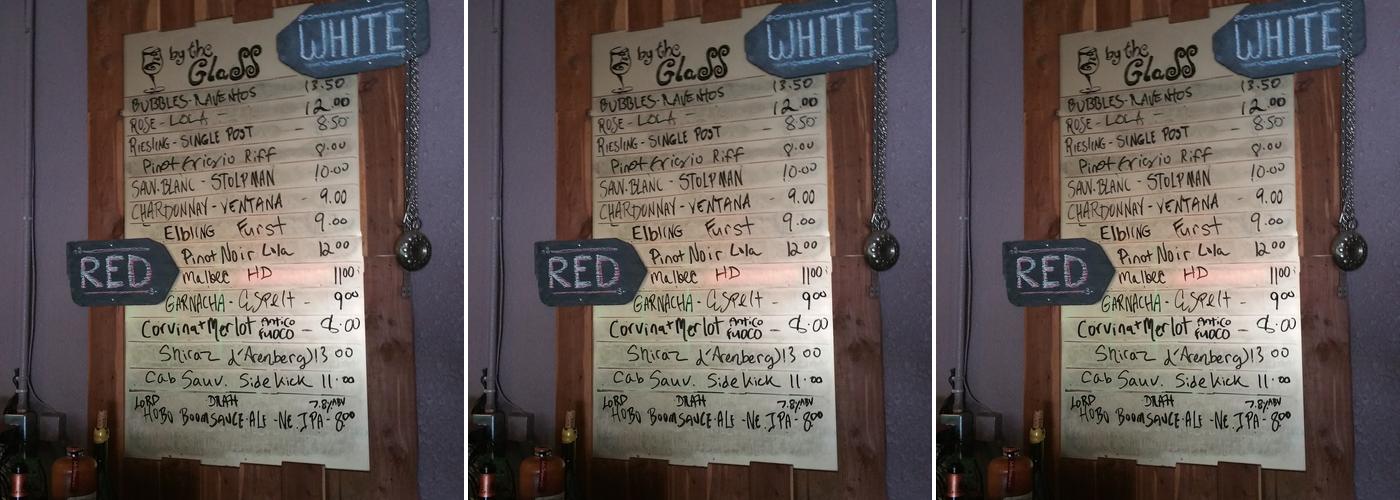 WHITE
by the
Glass
BUBBLES - RAVENTOS 13.50
ROSE - LOLA - 12.00
RIESLING - SINGLE POST - 8.50
Pinot Gricio Riff 8.00
SAUV. BLANC - STOLPMAN 10.00
CHARDONNAY - VENTANA - 9.00
Elbling Furst 9.00
RED
Pinot Noir Lola 12.00
Malbec HD 11.00
GARNACHA - Espelt - 9.00
Corvina+Merlot Antico Fuoco - 8.00
Shiraz d'Arenberg) 13 00
Cab Sauv. Side Kick 11.00
LORD DRAft 7.8%ABV
HOBO BOOMSAUCE - ALE - NE. IPA - 8.00
WHITE
by the
Glass
BUBBLES - RAVENTOS 13.50
ROSE - LOLA - 12.00
RIESLING - SINGLE POST - 8.50
Pinot Gricio Riff 8.00
SAUV. BLANC - STOLPMAN 10.00
CHARDONNAY - VENTANA - 9.00
Elbling Furst 9.00
RED
Pinot Noir Lola 12.00
Malbec HD 11.00
GARNACHA - Espelt - 9.00
Corvina+Merlot Antico Fuoco - 8.00
Shiraz d'Arenberg) 13 00
Cab Sauv. Side Kick 11.00
LORD DRAft 7.8%ABV
HOBO BOOMSAUCE - ALE - NE. IPA - 8.00
WHITE
by the
Glass
BUBBLES - RAVENTOS 13.50
ROSE - LOLA - 12.00
RIESLING - SINGLE POST - 8.50
Pinot Gricio Riff 8.00
SAUV. BLANC - STOLPMAN 10.00
CHARDONNAY - VENTANA - 9.00
Elbling Furst 9.00
RED
Pinot Noir Lola 12.00
Malbec HD 11.00
GARNACHA - Espelt - 9.00
Corvina+Merlot Antico Fuoco - 8.00
Shiraz d'Arenberg) 13 00
Cab Sauv. Side Kick 11.00
LORD DRAft 7.8%ABV
HOBO BOOMSAUCE - ALE - NE. IPA - 8.00